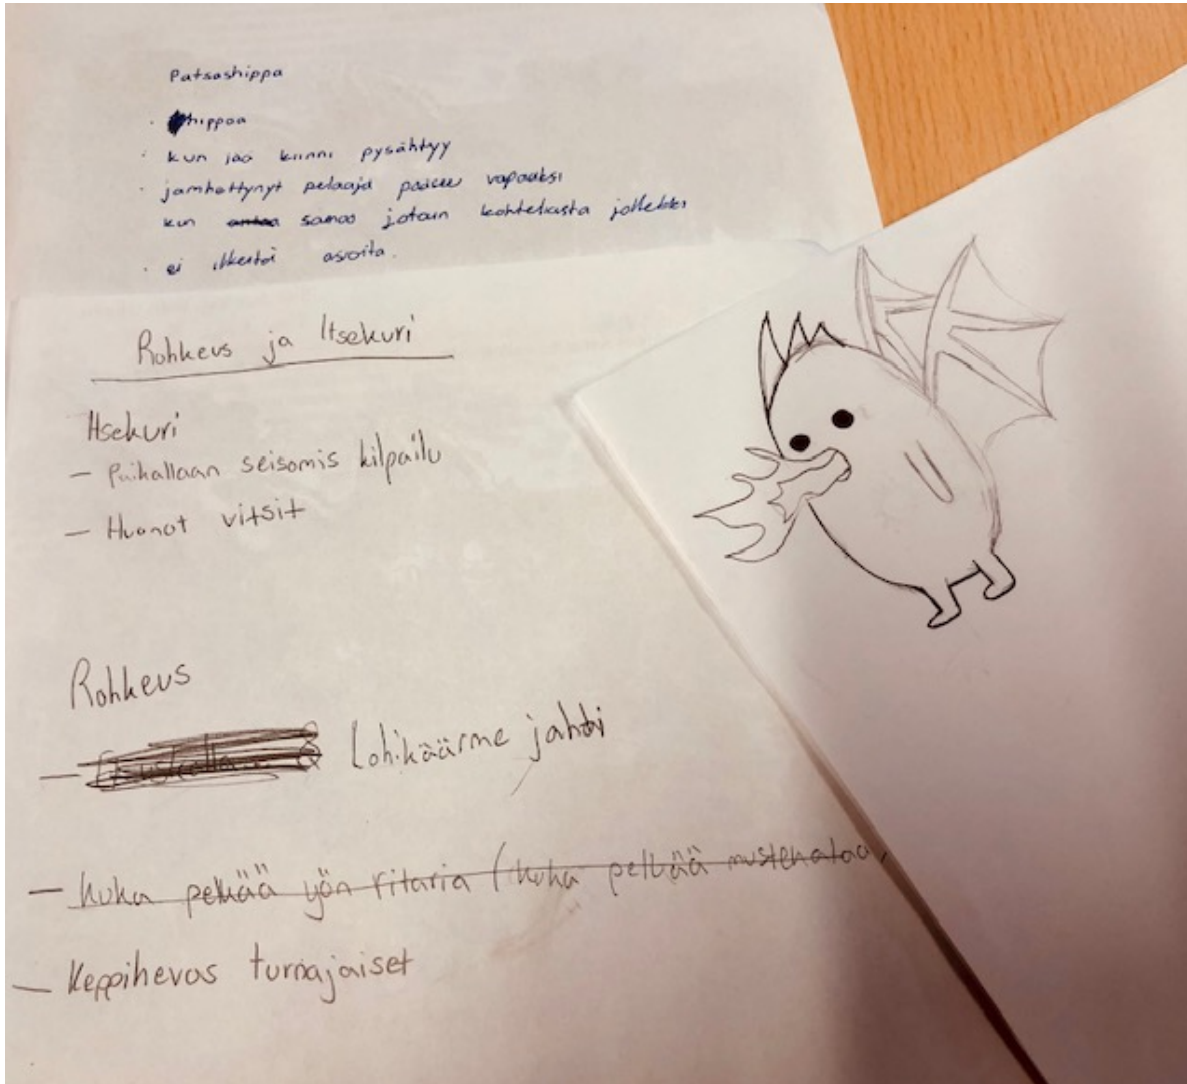 Patsashippa
· hippaa
· kun jää kiinni pysähtyy
· jämhettynyt pelaaja pääsee vapaaksi
kun sanoo jotain kohteliasta jollekki
· ei ilkeitä asioita.
Rohkeus ja Itsekuri
Itsekuri
— Paikallaan seisomis kilpailu
— Huonot vitsit
Rohkeus
— Lohikäärme jahti
— kuka pelkää yön ritaria (kuka pelkää mustekalaa,
— Keppihevos turnajaiset